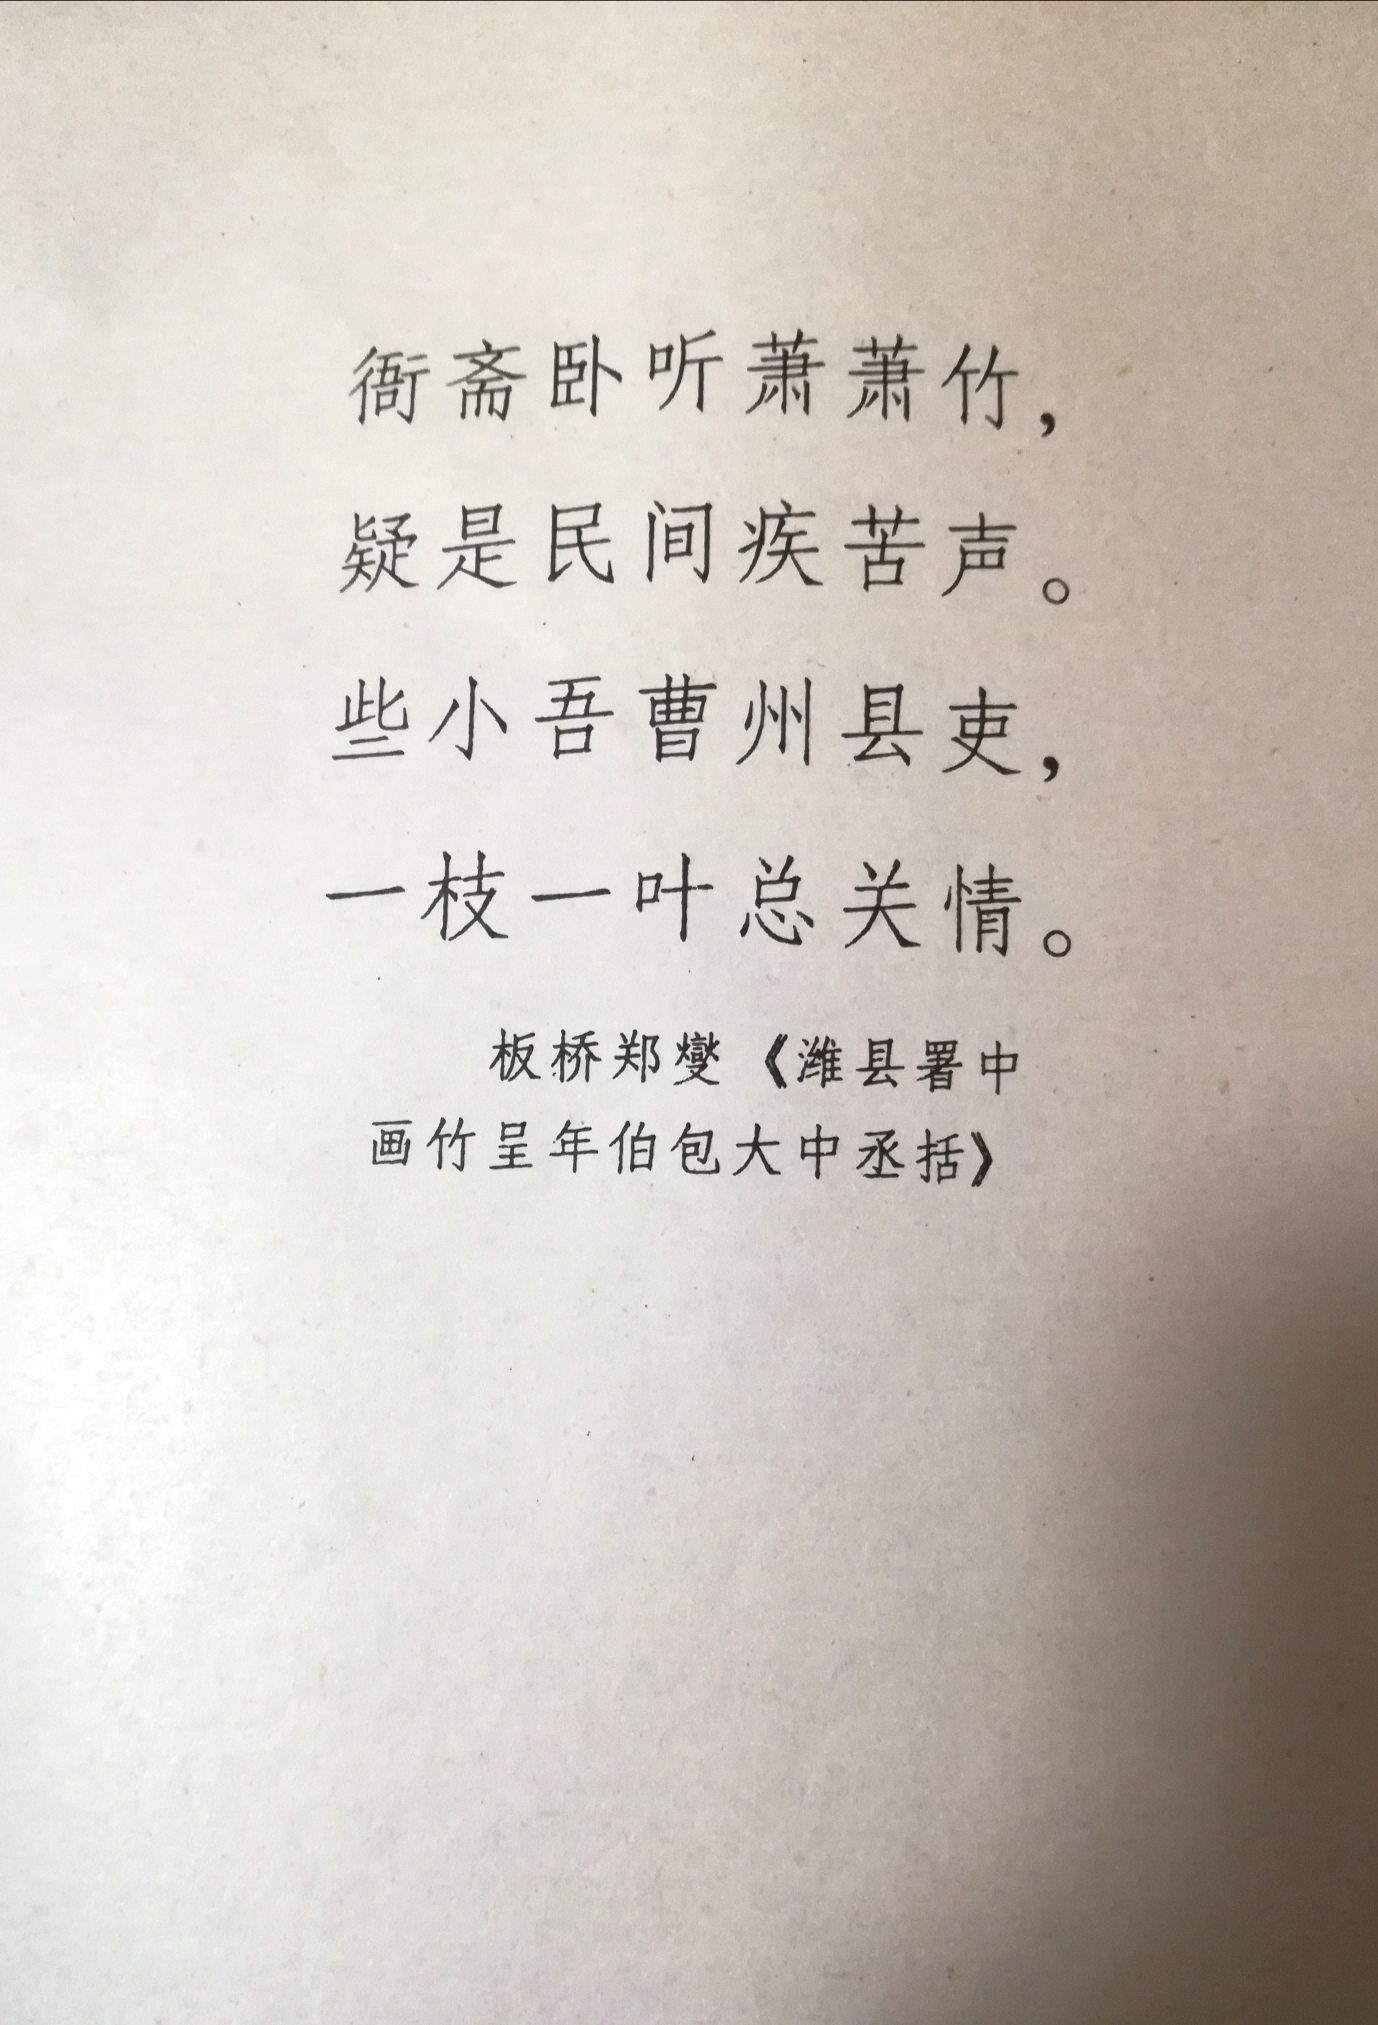 衙斋卧听萧萧竹，
疑是民间疾苦声。
些小吾曹州县吏，
一枝一叶总关情。
板桥郑燮《潍县署中
画竹呈年伯包大中丞括》